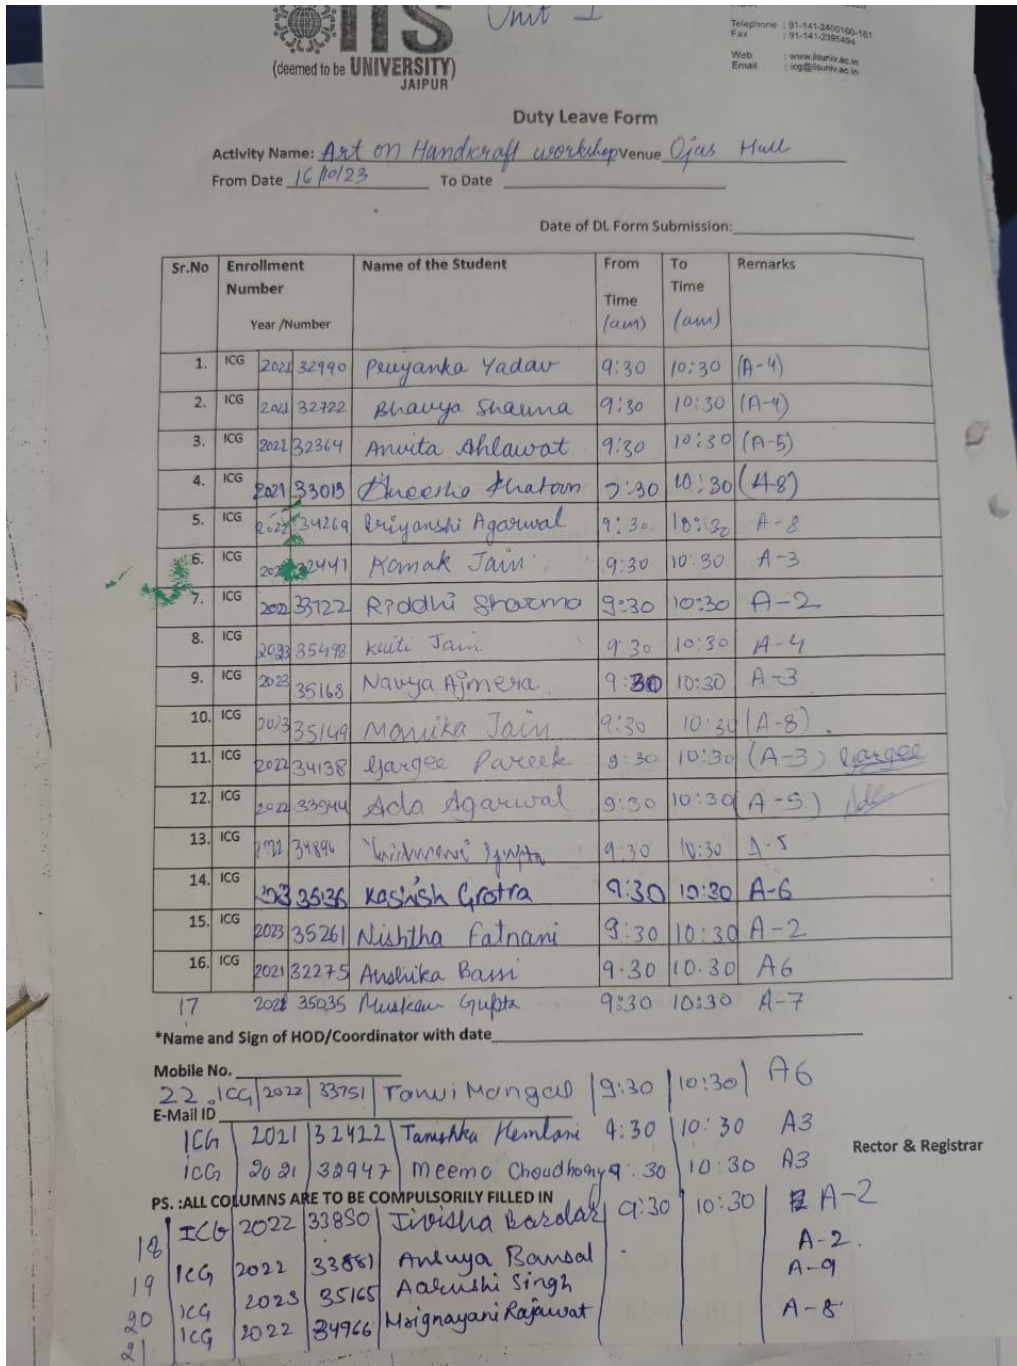 IIS Unit I
(deemed to be UNIVERSITY)
JAIPUR
Telephone : 91-141-2400160-161
Fax : 91-141-2395494
Web : www.iisuniv.ac.in
Email : icg@iisuniv.ac.in
Duty Leave Form
Activity Name: Art on Handicraft workshop Venue Ojas Hall
From Date 16/10/23 To Date
Date of DL Form Submission:
Sr.No Enrollment Number Year /Number Name of the Student From Time (am) To Time (am) Remarks
1. ICG 2021 32990 Priyanka Yadav 9:30 10:30 (A-4)
2. ICG 2021 32722 Bhavya Sharma 9:30 10:30 (A-4)
3. ICG 2021 32364 Anvita Ahlawat 9:30 10:30 (A-5)
4. ICG 2021 33013 Khatoon 9:30 10:30 (A-8)
5. ICG 2022 34269 Priyanshi Agarwal 9:30 10:30 A-8
6. ICG 32441 Jain 9:30 10:30 A-3
7. ICG 2022 33122 Riddhi Sharma 9:30 10:30 A-2
8. ICG 2023 35498 Kriti Jain 9:30 10:30 A-4
9. ICG 2023 35168 Navya Ajmera 9:30 10:30 A-3
10. ICG 2023 35149 Monika Jain 9:30 10:30 (A-8)
11. ICG 2022 34138 Gargee Pareek 9:30 10:30 (A-3) Gargee
12. ICG 2022 33944 Ada Agarwal 9:30 10:30 (A-5)
13. ICG 34896 Gupta 9:30 10:30
14. ICG 2023 35136 Kashish Grotra 9:30 10:30 A-6
15. ICG 2023 35261 Nishtha Fatnani 9:30 10:30 A-2
16. ICG 2021 32275 Anshika Bassi 9.30 10.30 A6
17 35035 Muskan Gupta 9:30 10:30 A-7
*Name and Sign of HOD/Coordinator with date
Mobile No.
22. ICG 2022 33751 Tanvi Mangal 9:30 10:30 A6
E-Mail ID
ICG 2021 32422 Tanishka Hemlani 9:30 10:30 A3
Rector & Registrar
ICG 2021 32947 Meemo Choudhary 9.30 10:30 A3
PS. :ALL COLUMNS ARE TO BE COMPULSORILY FILLED IN
18 ICG 2022 33850 Jivisha Bardar 9:30 10:30 A-2
19 ICG 2022 33881 Bansal A-2.
20 ICG 2023 35165 Aarushi Singh A-9
21 ICG 2022 34966 Mrignayani Rajawat A-8